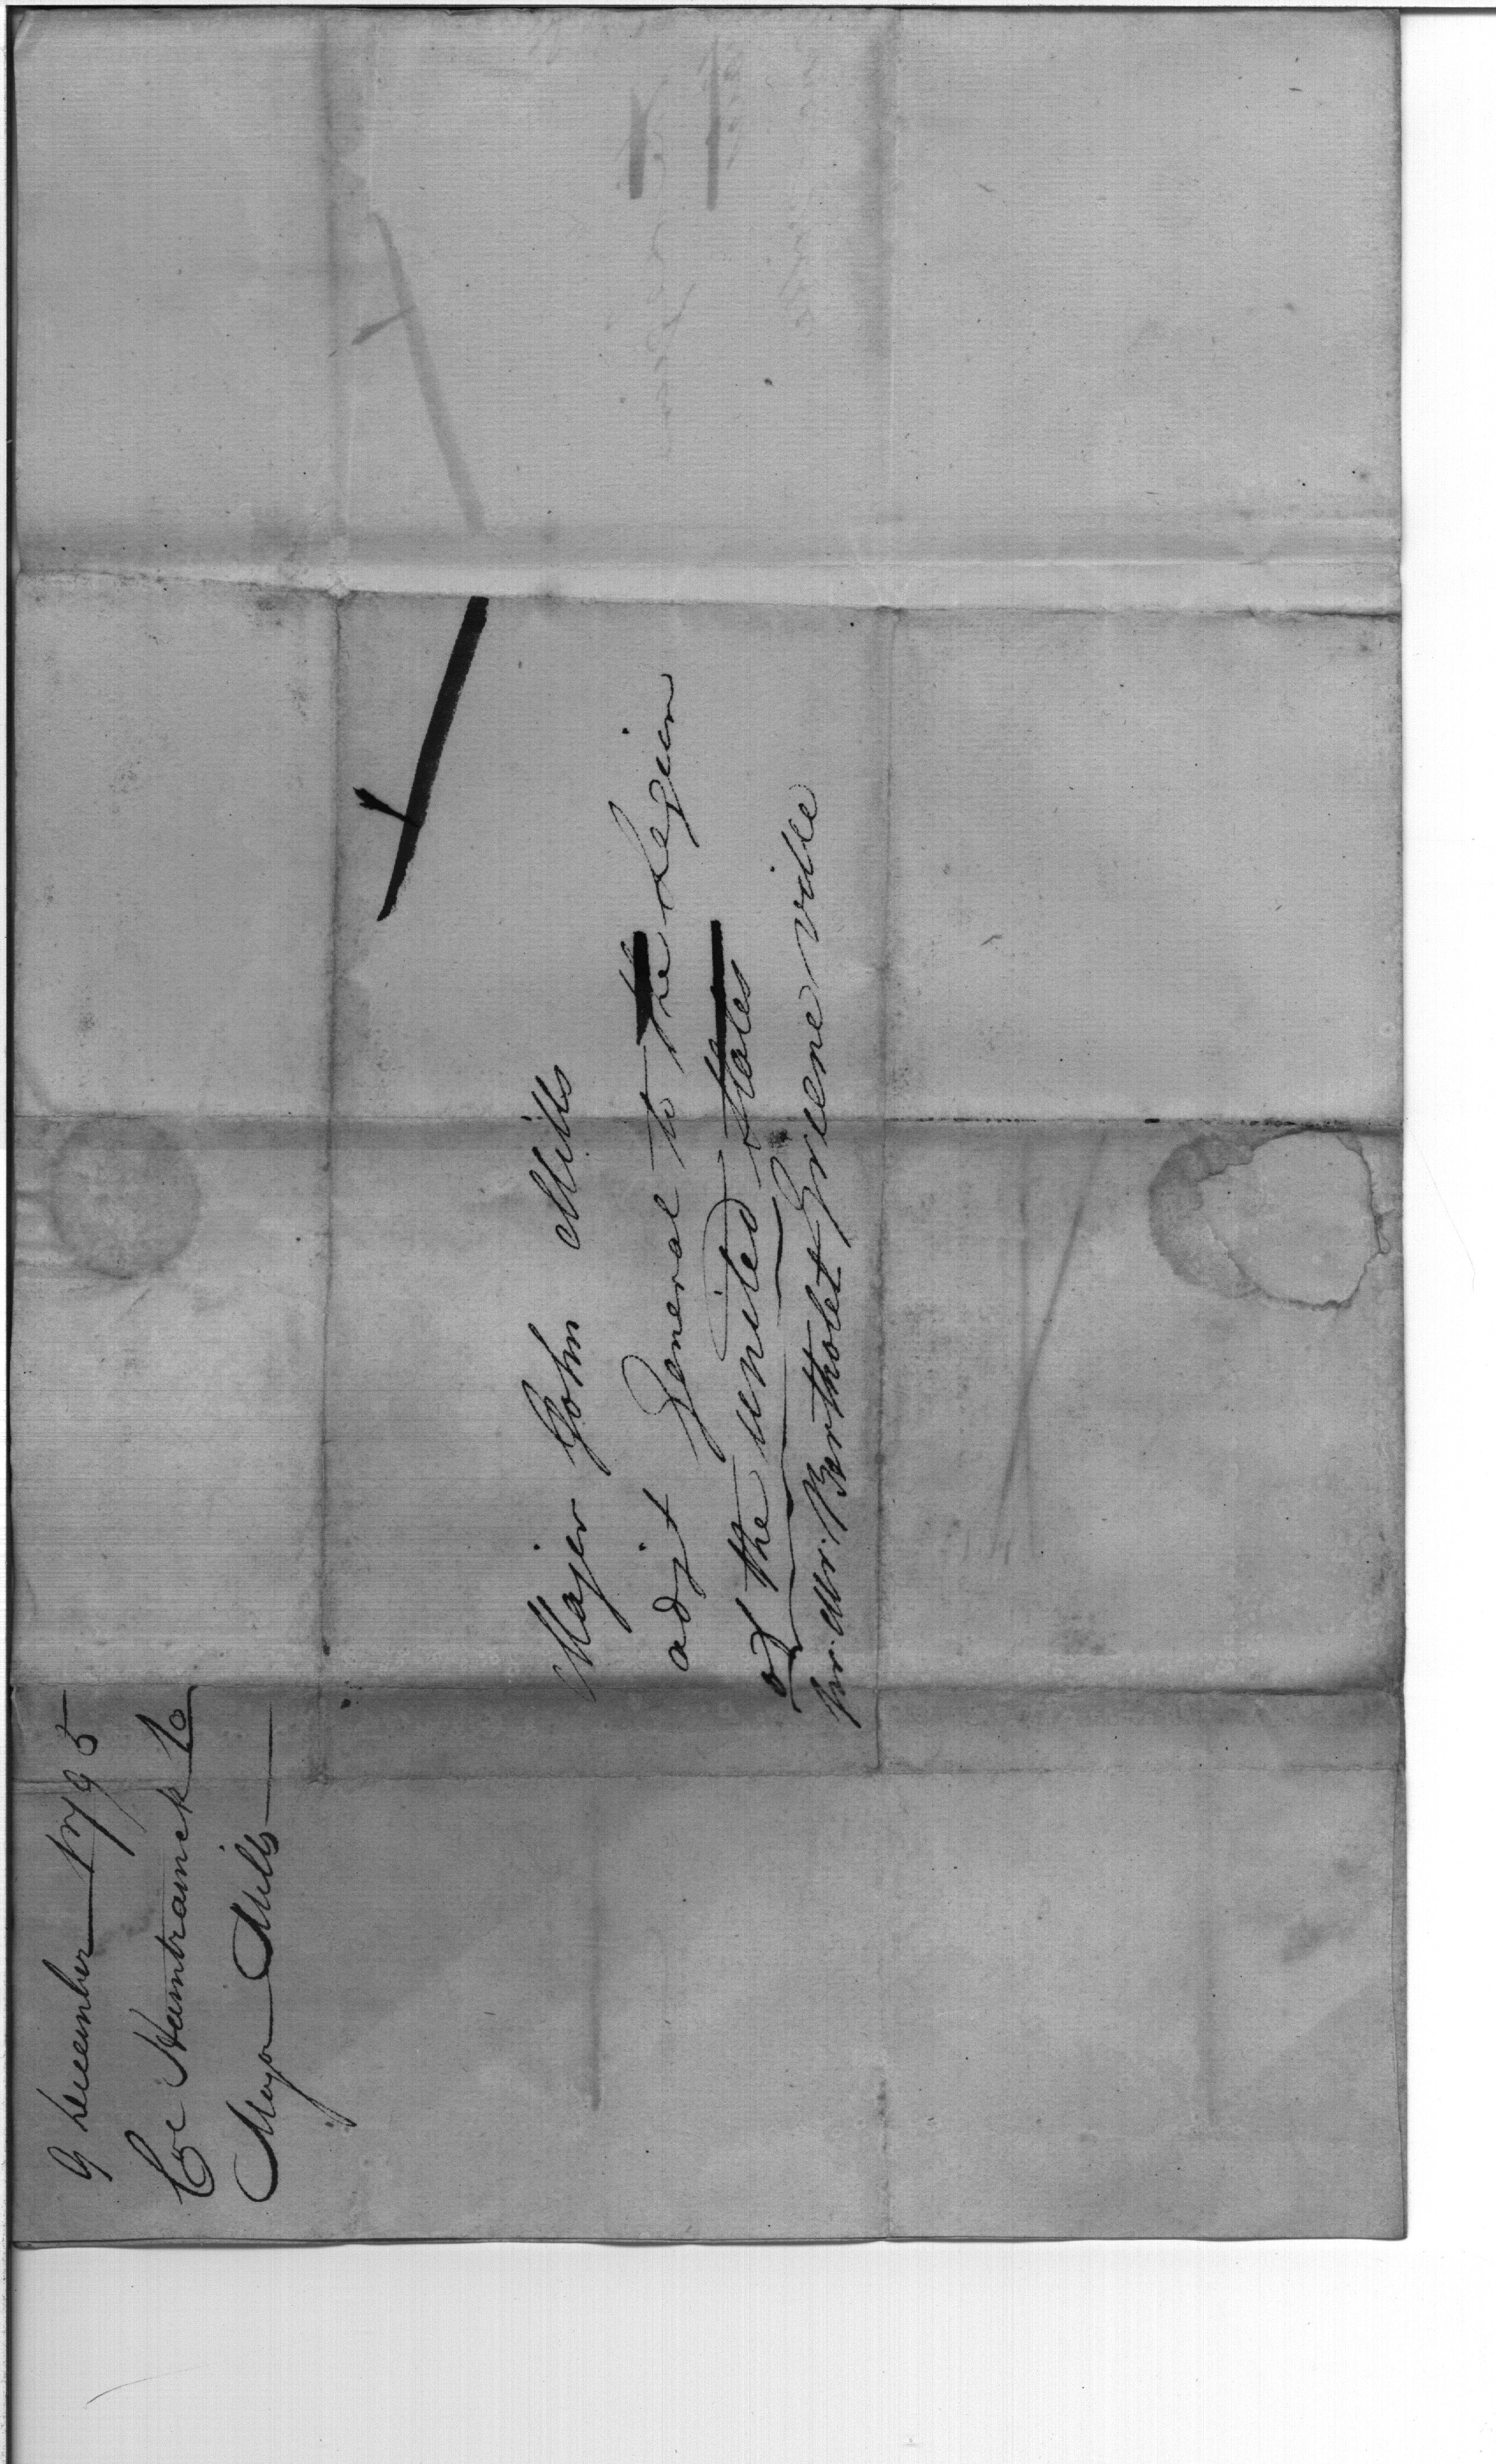 9 December 1795
Col Hamtramck to
Major Mills
Majer John Mills
adjt General to the Legion
of the united states
Greene ville
per Mr. Bertholet